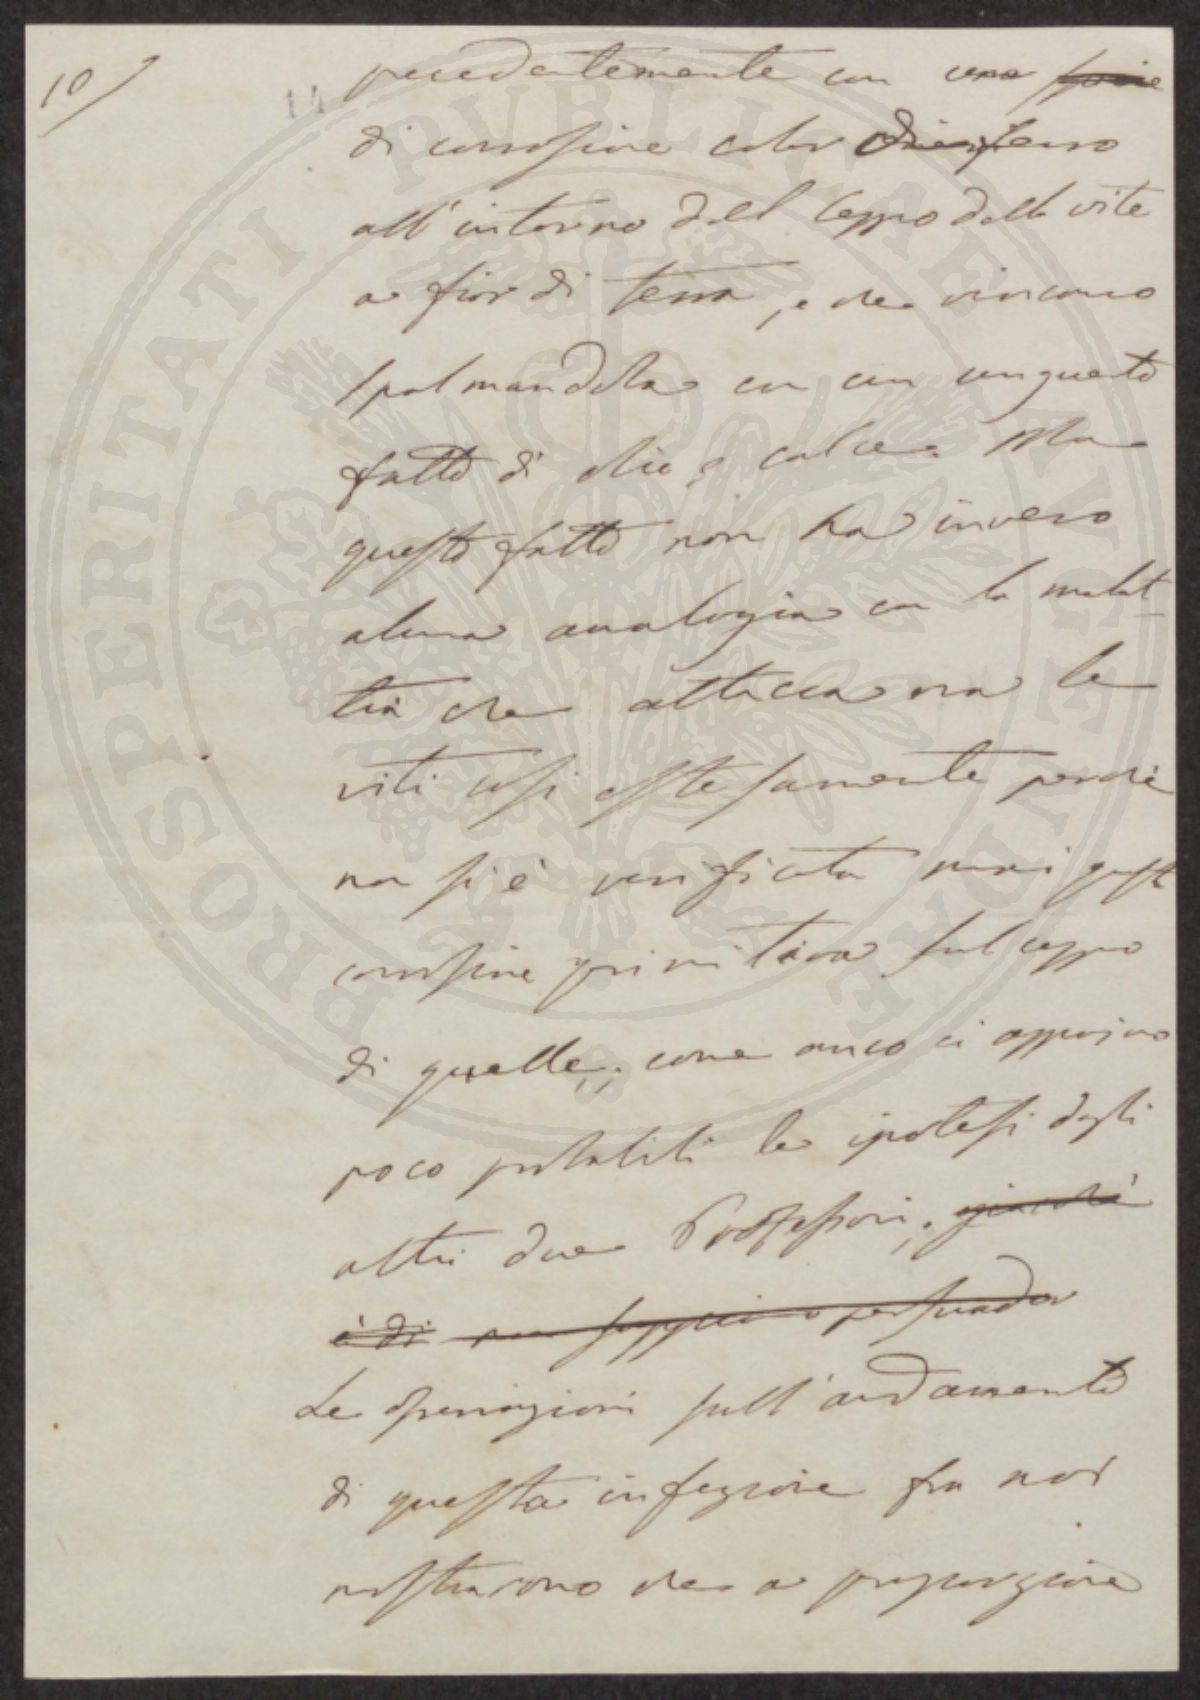 10/
14
precedentemente con una specie
di corrosione color
all'intorno del ceppo della vite
a fior di terra, e che vincono
spalmandola con un unguento
fatto di olio e calce. Ma
questo fatto non ha invero
alcuna analogia con la malat-
tia che attacca ora le
viti così estesamente perchè
non si è verificata mai questa
corrosione primitiva sul ceppo
di quelle; come anco ci appajono
poco probabili le ipotesi degli
altri due Professori; giacchè
è di persuader
Le operazioni sull'andamento
di questa infezione fra noi
mostrarono che a proporzione
PROSPERITATI PVBLICAE AVGENDAE